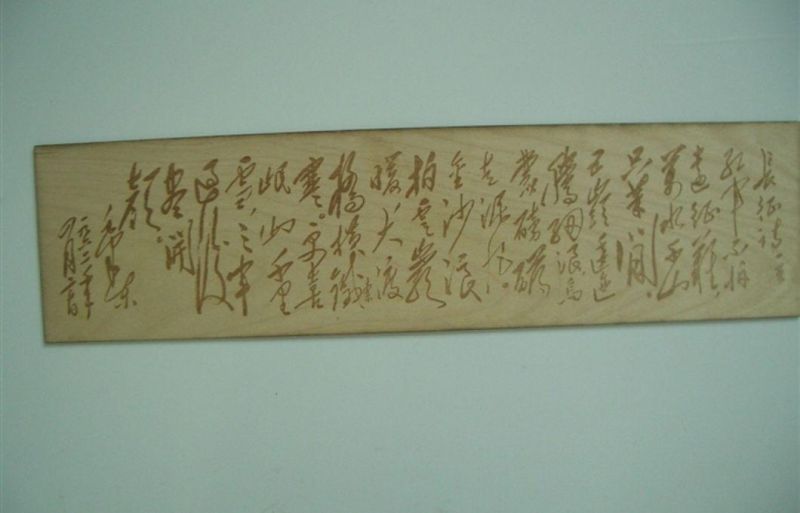 长征诗一首
红军不怕
远征难
万水千山
只等闲
五岭逶迤
腾细浪乌
蒙磅礴
走泥丸。
金沙浪
拍云岩
暖大渡
桥横铁索
寒。更喜
岷山千里
雪三军
过后
尽开
颜。
毛泽东
一九六二年
九月